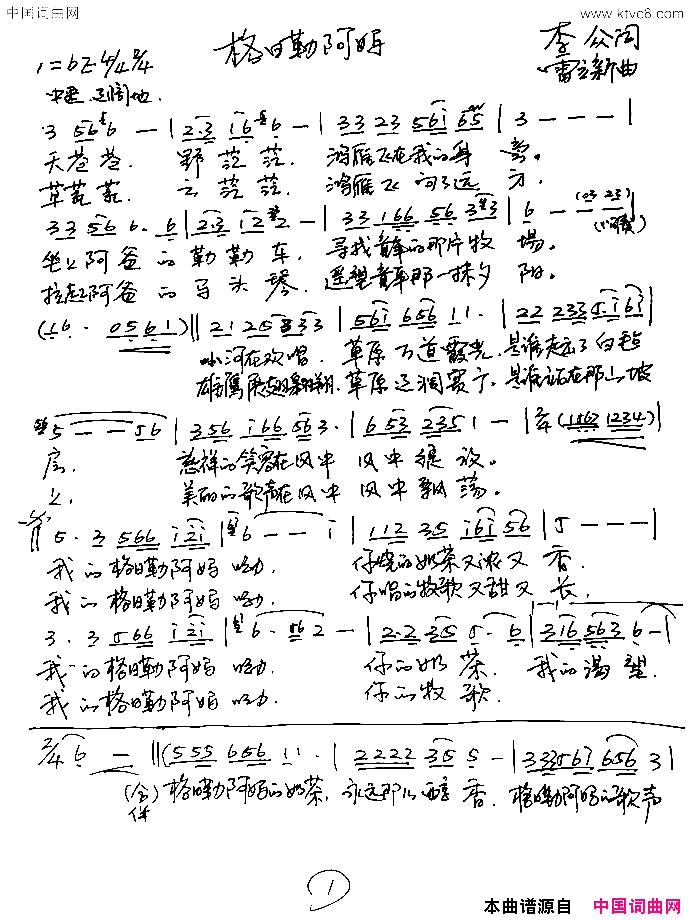 中国词曲网
www.ktvc8.com
格日勒阿妈
李众词
雷立新曲
1=bE 4/4 2/4
中速 辽阔地
3 56 6 — | 2·3 16 6 — | 33 23 561 65 | 3 — — — |
天苍苍. 野茫茫. 鸿雁飞在我的身旁。
草荒荒. 云茫茫. 鸿雁飞向了远方.
33 56 6· 6 | 2·3 12 2 — | 33 166 56 3 3 | 6 — — (03 23) |
坐上阿爸的勒勒车. 寻找童年的那片牧場。
拉起阿爸的马头琴. 遥望童年那一抹夕阳。
(16 · 0561) ‖ 2125 3 33 | 561 656 11· | 22 233 5 163 |
小河在欢唱. 草原万道霞光. 是谁走出了白毡
雄鹰展翅翱翔. 草原辽阔宽广. 是谁站在那山坡
5 — — 56 | 356 166 56 3· | 6 53 235 1 — | 2/4 (1563 1234) |
房. 慈祥的笑容在风中 风中绽放。
上. 美丽的歌声在风中 风中飘荡。
5· 3 566 121 | 6 — — 1 | 112 35 161 56 | 5 — — — |
我的格日勒阿妈呦. 你烧的奶茶又浓又香.
我的格日勒阿妈呦. 你唱的牧歌又甜又长.
3· 3 566 121 | 6· 56 2 — | 2·2 35 5· 6 | 316 563 6 — |
我的格日勒阿妈呦 你的奶茶. 我的渴望.
我的格日勒阿妈呦. 你的牧歌.
2/4 6 — ‖ (555 656 11· | 2222 35 5 — | 333567 656 3 |
(合伴) 格日勒阿妈的奶茶. 永远那么醇香. 格日勒阿妈的歌声
1
本曲谱源自 中国词曲网